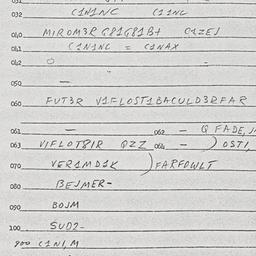 032 C1N1NC C11NG
040 MIROM3R G81G81B+ C1ZEJ
041 C1N1NC = C1NAX
042
050 —
060 FUT3R V1FLOST1BACULD3RFAR
061 — 062 — Q FADE,
063 VIFLOT8IR QZZ 064 — ) OSTI,
070 VER1MD1K ) FARFOWLT
080 BEJMER-
090 BOJM
100 SUD2-
900 C1N1,M